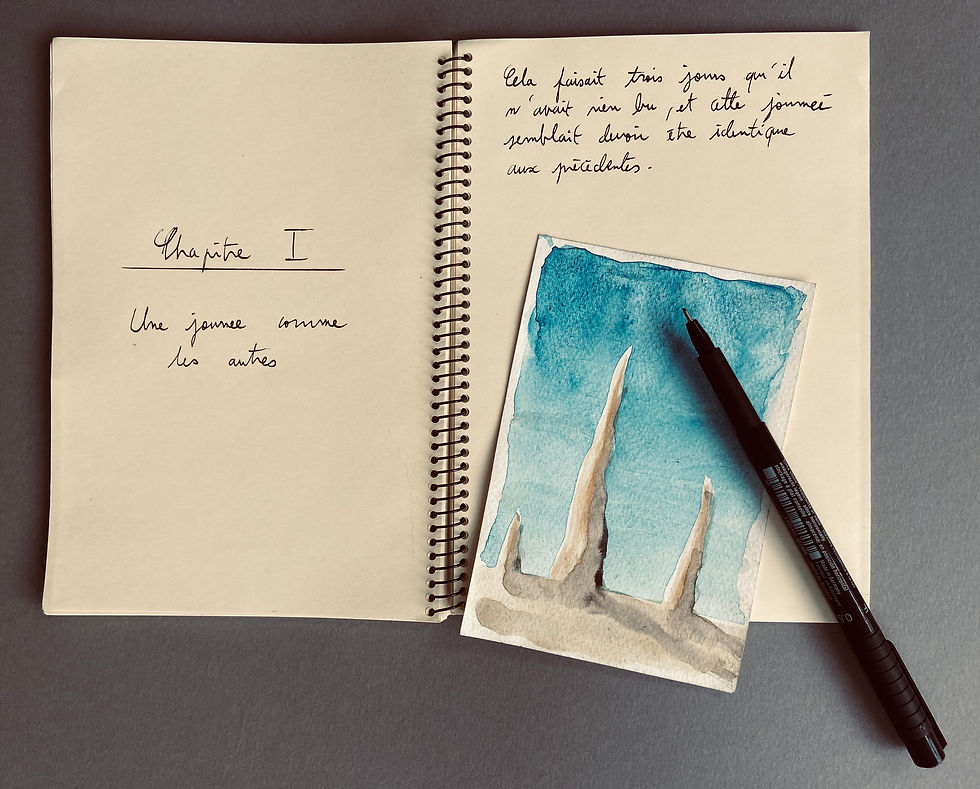 Chapitre I
Une journee comme
les autres
Cela faisait trois jours qu'il
n'avait rien bu, et cette journée
semblait devoir être identique
aux précédentes.